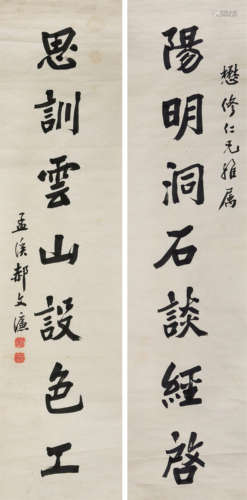 懋修仁兄雅属
陽明洞石談經啓
思訓雲山設色工
孟溪郝文濂